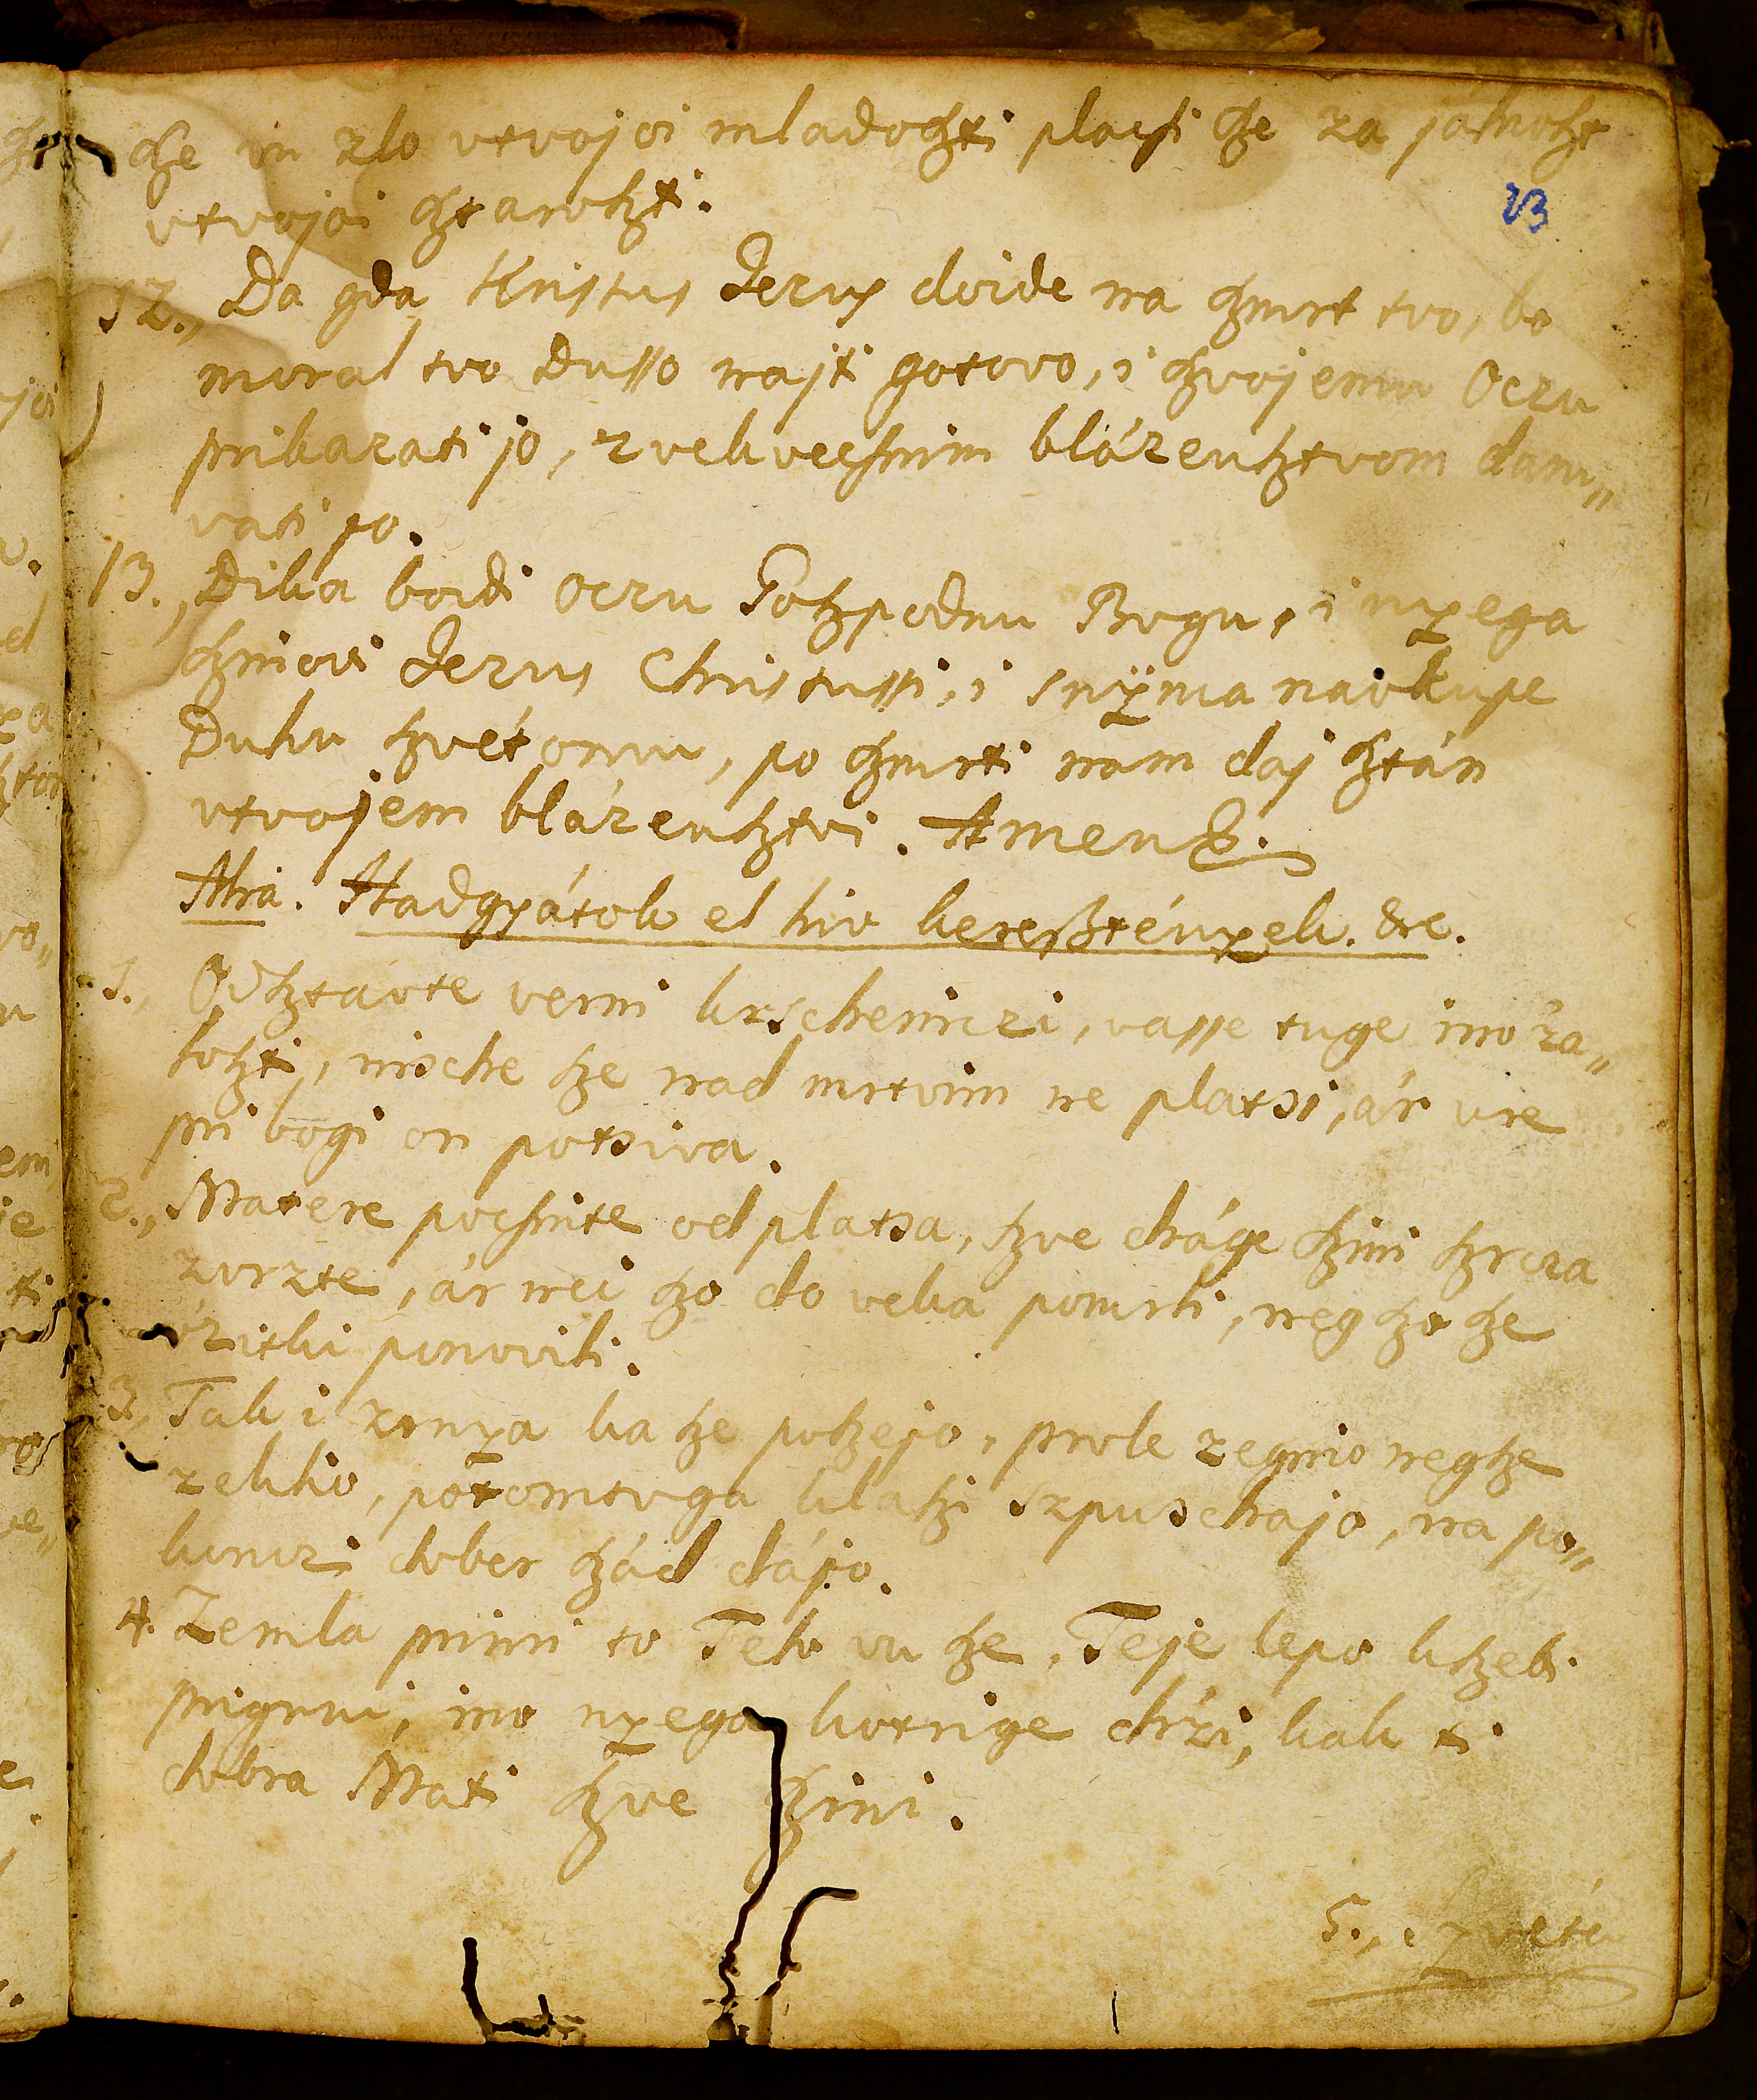 sze vu zlo vtvojoi mladoszti placsi sze za jálnoszt
vtvojoi sztaroszti.
12., Da gda Kristus Jezus doide na szmrt tvo, bo
moral tvo Dusso najti gotovo, i szvojemu Oczu
prikazati jo, z vekvecsnim blázensztvom daru„
vati jo.
13., Dika boidi Oczu Goszpodnu Bogu, i nyega
szinovi Jezus Christussi, i snÿima navkupe
Duhu szvétomu, po szmrti nam daj sztán
vtvojem blázensztvi. Amen.
Alia. Hadgyátok el hiv kereßtények. &c.
1., Odsztávte verni krscheniczi, vasse tuge ino 'za„
loszti, nische sze nad mrtvim ne platsi, ár vre
pri bogi on potsiva.
2., Matere pocsnite od platsa, szve dráge szini szrcza
zvrzte, ár nei szo do veka pomrli, neg szo sze
'zitki ponovili.
3., Tak i zrnya ka sze poszejo, prole zegnio neg sze
zekho, potomtoga klaszi szpuschajo, na po„
konczi dober szád dájo.
4. Zemla primi to Telo vu sze, Teje lepo kszebi
prigrni, ino nyega kotrige dr'zi, kak ti
dobra Mati szve szini.
5., Szvéta
23